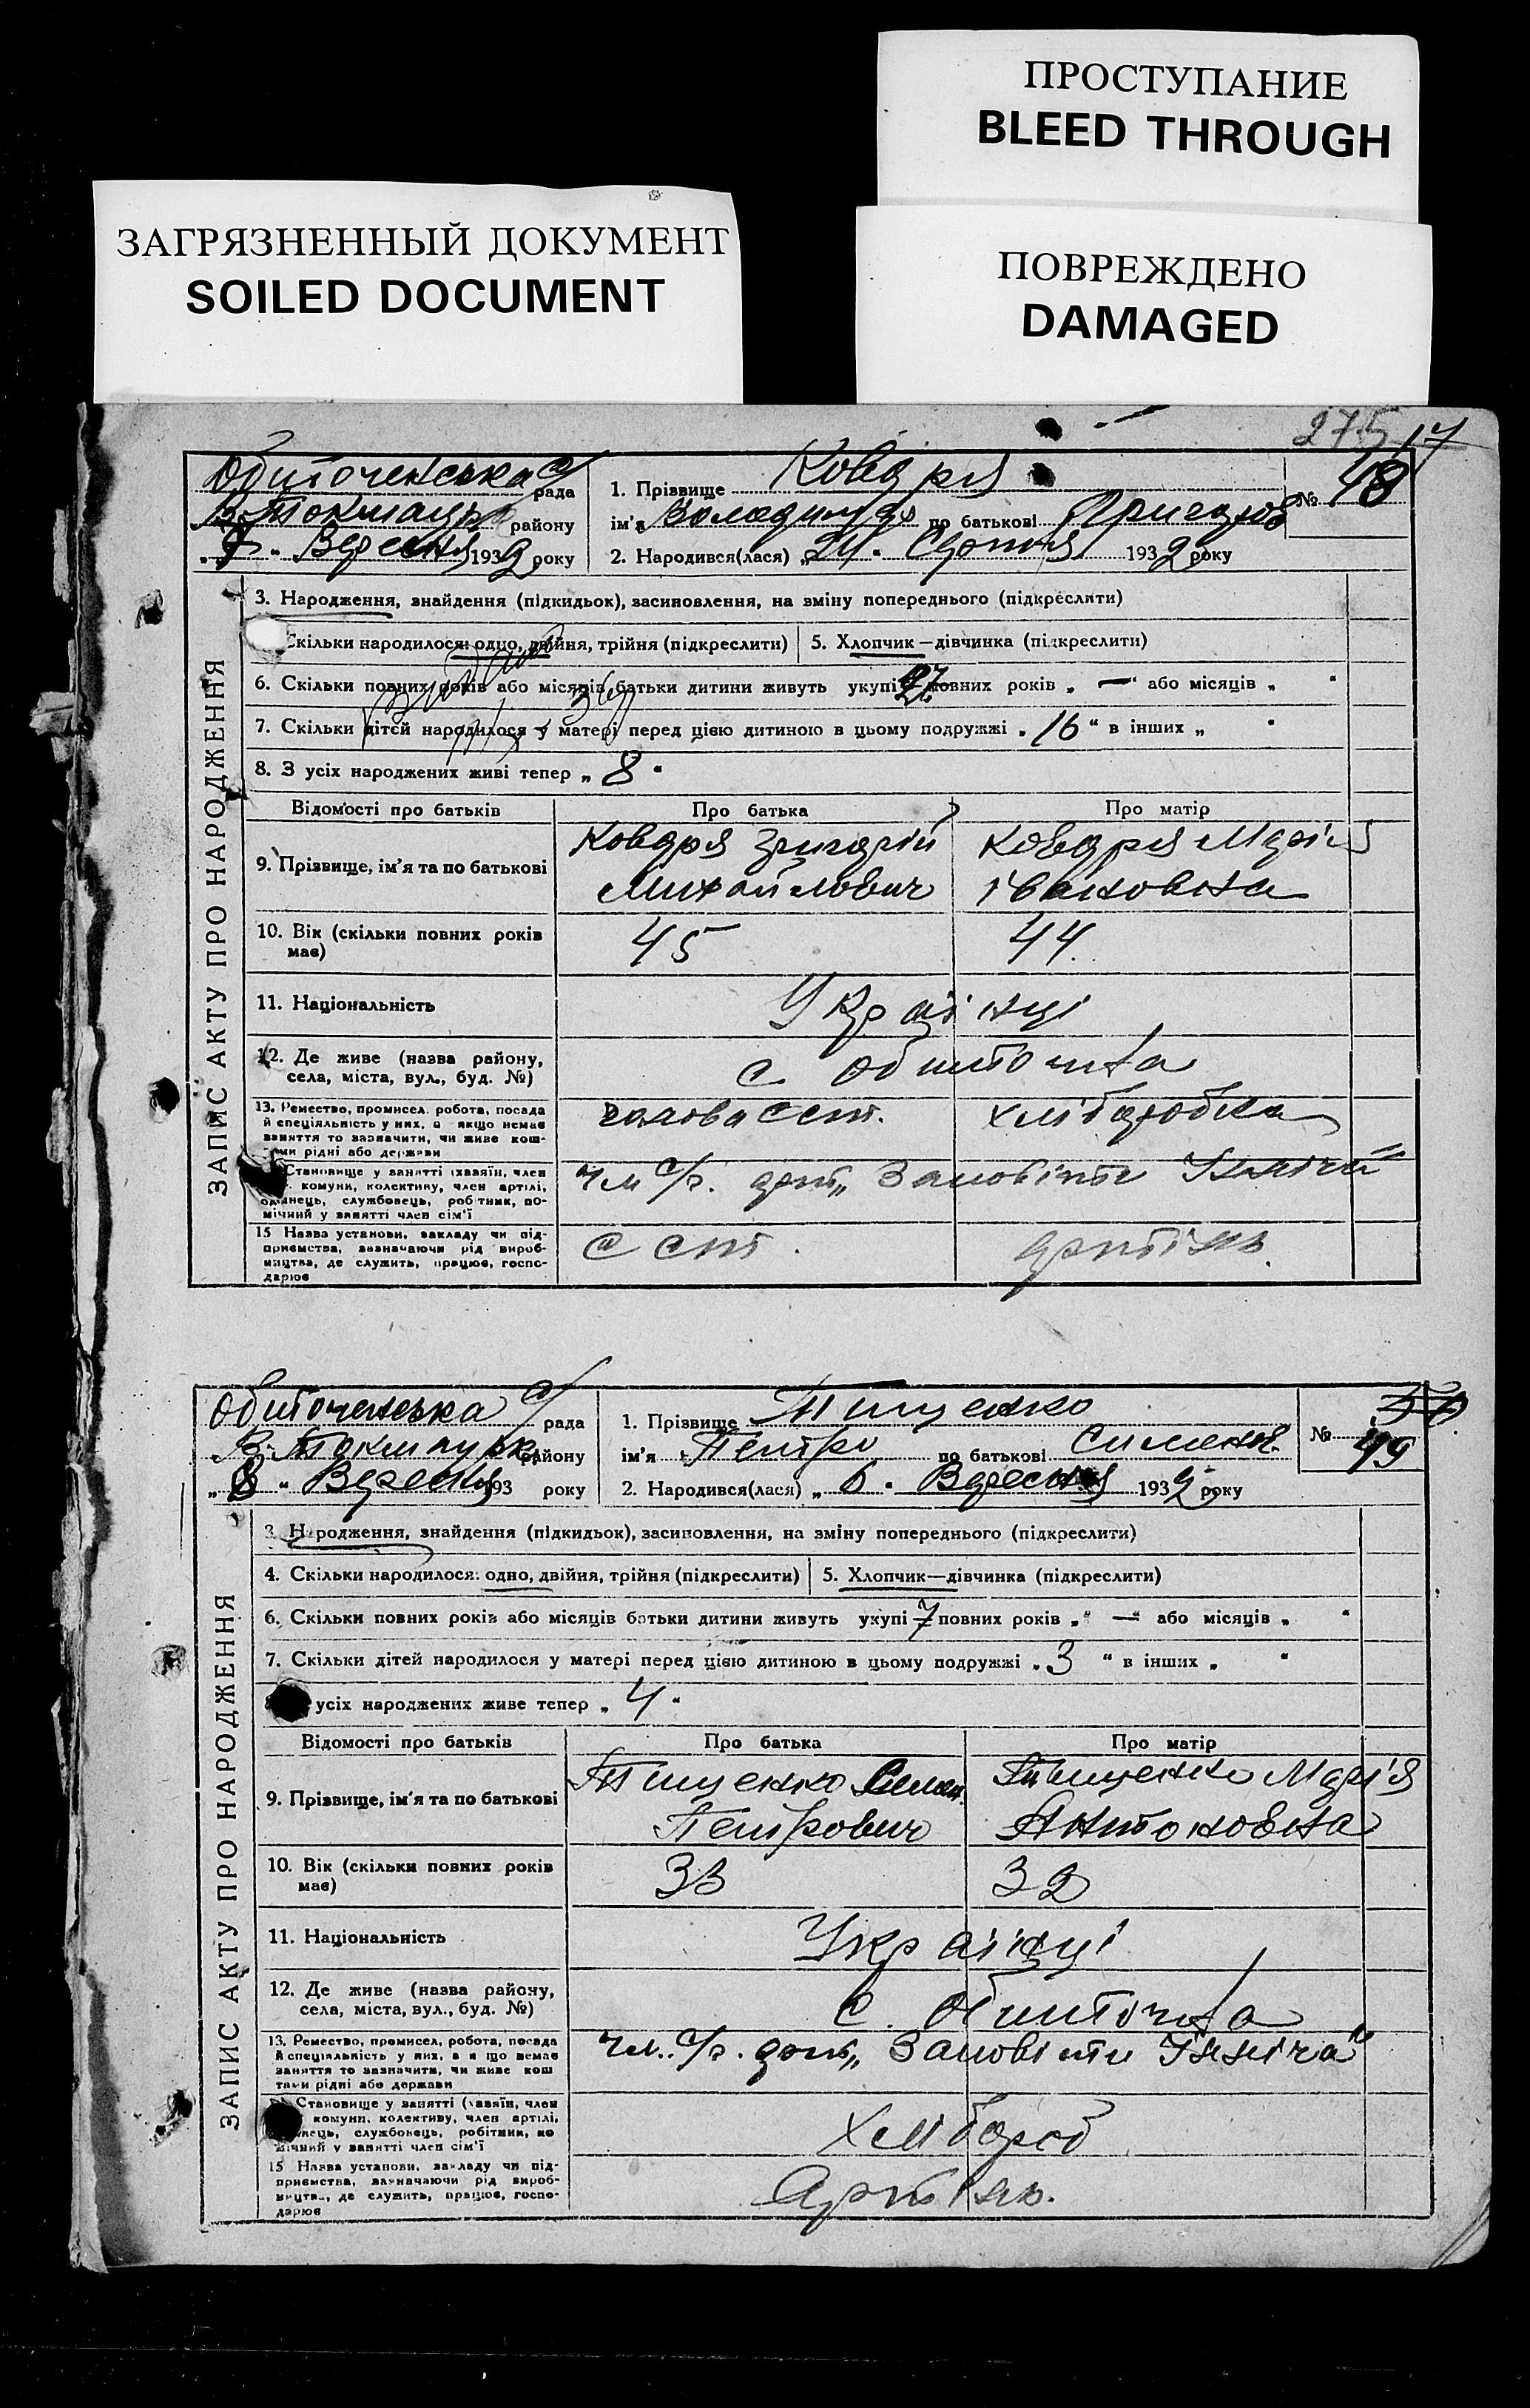 ПРОСТУПАНИЕ
BLEED THROUGH
ЗАГРЯЗНЕННЫЙ ДОКУМЕНТ
SOILED DOCUMENT
ПОВРЕЖДЕНО
DAMAGED
275 17
ЗАПИС АКТУ ПРО НАРОДЖЕННЯ
Обиточенська с/рада
В-Токмацьк району
"7" Вересня 1932 року
1. Прізвище Коваря
ім'я Володимир по батькові Григоров
2. Народився(лася) "24" Серпня 1932 року
№ 48
3. Народження, знайдення (підкидьок), засиновлення, на зміну попереднього (підкреслити)
Скільки народилося: одно, двійня, трійня (підкреслити) 5. Хлопчик—дівчинка (підкреслити)
6. Скільки повних років або місяців батьки дитини живуть укупі 27 повних років „ — " або місяців „ "
7. Скільки дітей народилося у матері перед цією дитиною в цьому подружжі „16" в інших „ "
8. З усіх народжених живі тепер „8"
Відомості про батьків Про батька Про матір
9. Прізвище, ім'я та по батькові
Коваря Григорій
Михайлович
Коваря Марія
Івановна
10. Вік (скільки повних років має) 45 44.
11. Національність Українці
12. Де живе (назва району, села, міста, вул., буд. №) с Обиточна
13. Ремество, промисел, робота, посада й спеціяльність у них, а якщо немає заняття то зазначити, чи живе коштами рідні або держави
голова ССТ. хліборобка
Становище у занятті (хазяїн, член комуни, колективу, член артілі, одинець, службовець, робітник, помічний у занятті член сім'ї
чл с/г. арт„ Заповіти Ілліча"
15 Назва установи, закладу чи підприємства, зазначаючи рід виробництва, де служить, працює, господарює
ССТ. артіль.
ЗАПИС АКТУ ПРО НАРОДЖЕННЯ
Обиточенська с/рада
В-Токмацьк району
„8" Вересня 193 року
1. Прізвище Тищенко
ім'я Петро по батькові Сименов.
2. Народився(лася) „6" Вересня 1932 року
№ 49
3. Народження, знайдення (підкидьок), засиновлення, на зміну попереднього (підкреслити)
4. Скільки народилося: одно, двійня, трійня (підкреслити) 5. Хлопчик—дівчинка (підкреслити)
6. Скільки повних років або місяців батьки дитини живуть укупі 7 повних років „ — " або місяців „ "
7. Скільки дітей народилося у матері перед цією дитиною в цьому подружжі „3 " в інших „ "
усіх народжених живе тепер „4"
Відомості про батьків Про батька Про матір
9. Прізвище, ім'я та по батькові
Тищенко Семен
Петрович
Тищенко Марія
Антоновна
10. Вік (скільки повних років має) 33 32
11. Національність Українці
12. Де живе (назва району, села, міста, вул., буд. №) с. Обиточна
13. Ремество, промисел, робота, посада й спеціяльність у них, а якщо немає заняття то зазначити, чи живе коштами рідні або держави
чл. с/г. арт„ Заповіти Ілліча"
Становище у занятті (хазяїн, член комуни, колективу, член артілі, одинець, службовець, робітник, помічний у занятті член сім'ї
Хлібороб
15 Назва установи, закладу чи підприємства, зазначаючи рід виробництва, де служить, працює, господарює
Артіль.